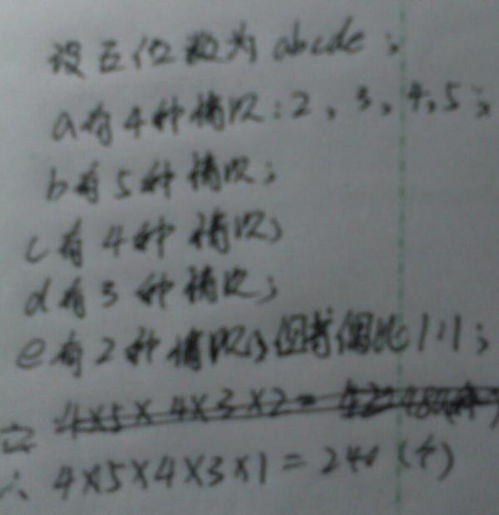 设五位数为abcde；
a有4种情况：2，3，4，5；
b有5种情况；
c有4种情况；
d有3种情况；
e有2种情况，但奇偶比1:1；
4×5×4×3×2=
∴ 4×5×4×3×1=240（个）